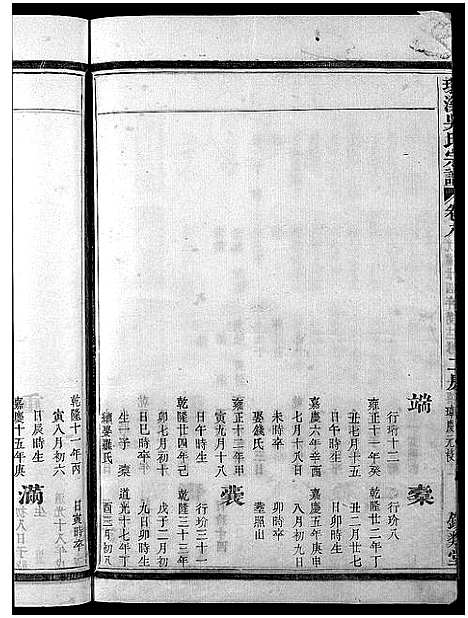 吳氏宗譜
卷八
二房
端
行玠十三
雍正十一年癸
丑七月十五
日午時生
嘉慶六年辛酉
七月十八日
未時卒
娶錢氏
雍正十二年甲
寅九月十八
日午時生
乾隆廿四年己
卯七月初十
日巳時卒
生一子
續娶羅氏
乾隆十一年丙
寅八月初六
日辰時生
嘉慶十五年庚
行玠八
乾隆廿二年丁
丑二月廿七
日卯時生
嘉慶五年庚申
八月初九日
卯時卒
塟照山
裘
行玠三十一
乾隆三十三年
戊子二月初
九日卯時生
道光十七年丁
酉三月初八
日寅時卒
滿